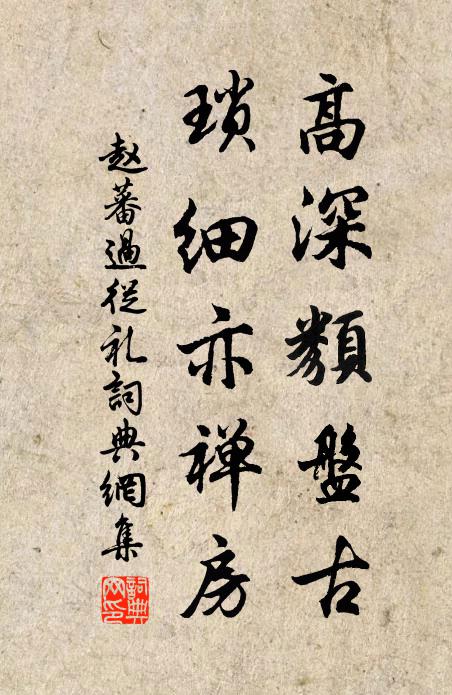 高深類盤古
瑣细亦禅房
赵蕃過從礼詞典網集
詞典网印